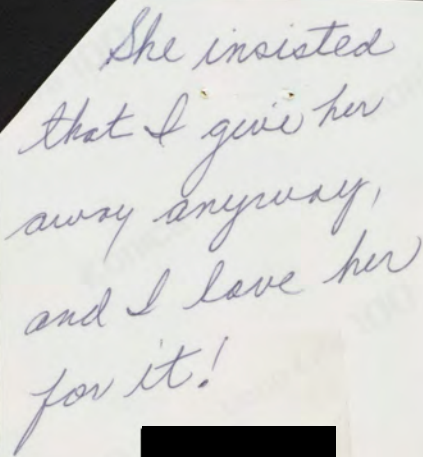 She insisted
that I give her
away anyway,
and I love her
for it!